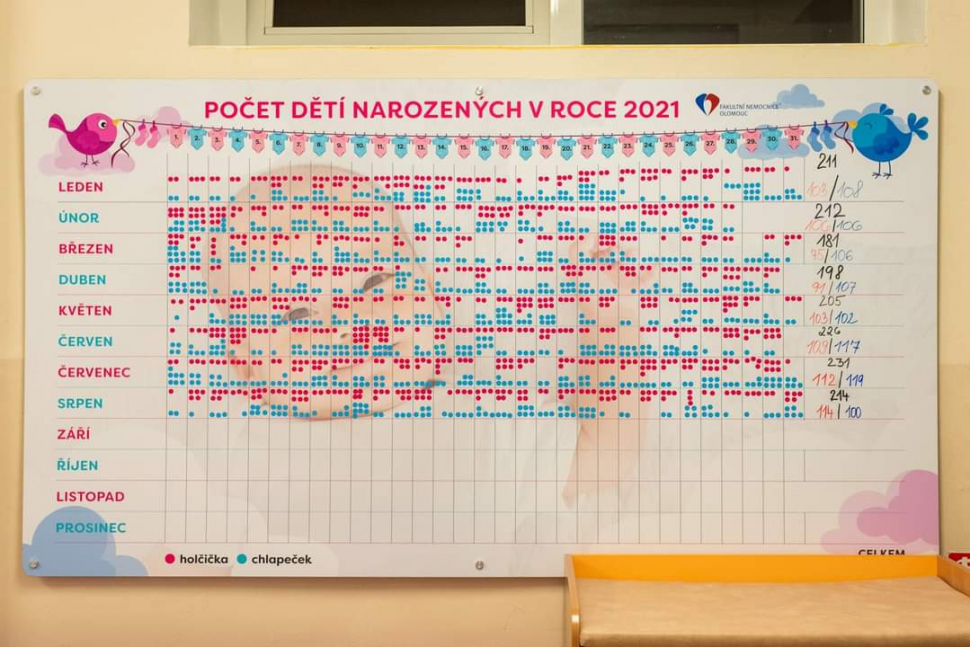 POČET DĚTÍ NAROZENÝCH V ROCE 2021
FAKULTNÍ NEMOCNICE
OLOMOUC
1. 2. 3. 4. 5. 6. 7. 8. 9. 10. 11. 12. 13. 14. 15. 16. 17. 18. 19. 20. 21. 22. 23. 24. 25. 26. 27. 28. 29. 30. 31.
211
LEDEN 103/108
ÚNOR 212
106/106
BŘEZEN 181
75/106
DUBEN 198
91/107
KVĚTEN 205
103/102
ČERVEN 226
109/117
ČERVENEC 231
112/119
SRPEN 214
114/100
ZÁŘÍ
ŘÍJEN
LISTOPAD
PROSINEC
holčička chlapeček
CELKEM